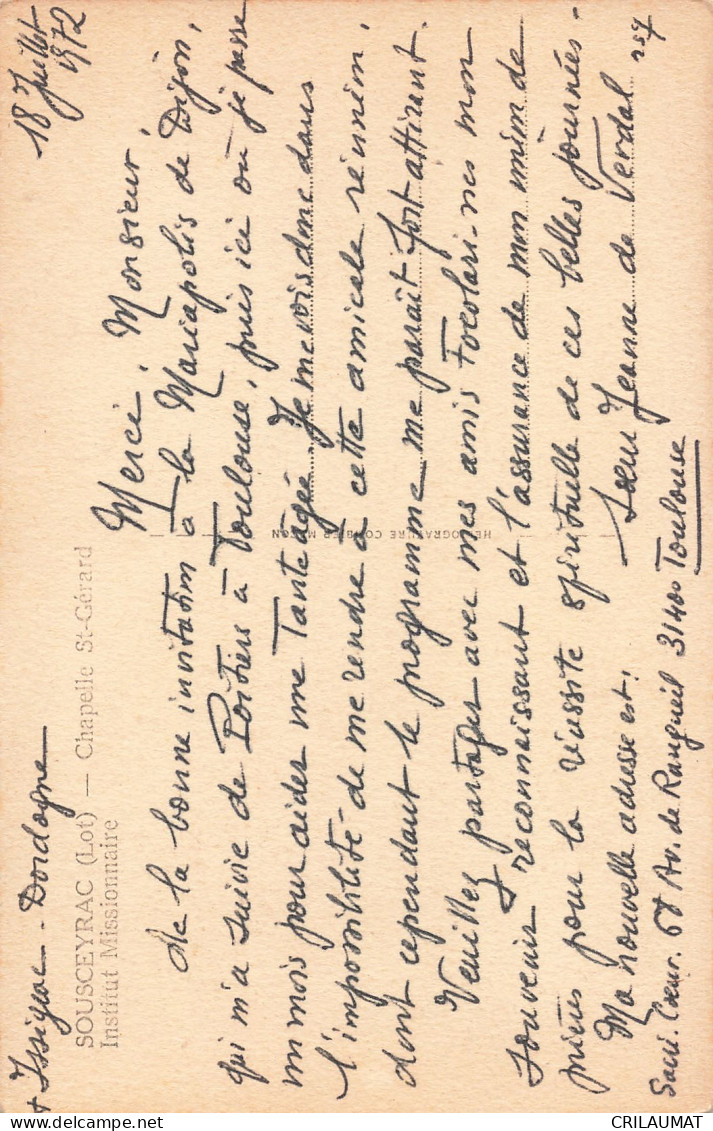 + Issigeac - Dordogne
18 Juillet
1972
SOUSCEYRAC (Lot) — Chapelle St-Gérard
Institut Missionnaire
Merci, Monsieur,
de la bonne invitation à la Mariapolis de Dijon,
qui m'a suivie de Poitiers à Toulouse, puis ici où je passe
un mois pour aider une Tante âgée. Je me vois donc dans
l'impossibilité de me rendre à cette amicale réunion,
dont cependant le programme me paraît fort attirant.
Veuillez partager avec mes amis Focolari-nes mon
souvenir reconnaissant et l'assurance de mon union de
prières pour la réussite spirituelle de ces belles journées-
Ma nouvelle adresse est:
Sœur Jeanne de Verdal
Sacré. Cœur. Av. de Rangueil 31400 Toulouse
HELIOGRAVURE COMBIER MACON
CRILAUMAT